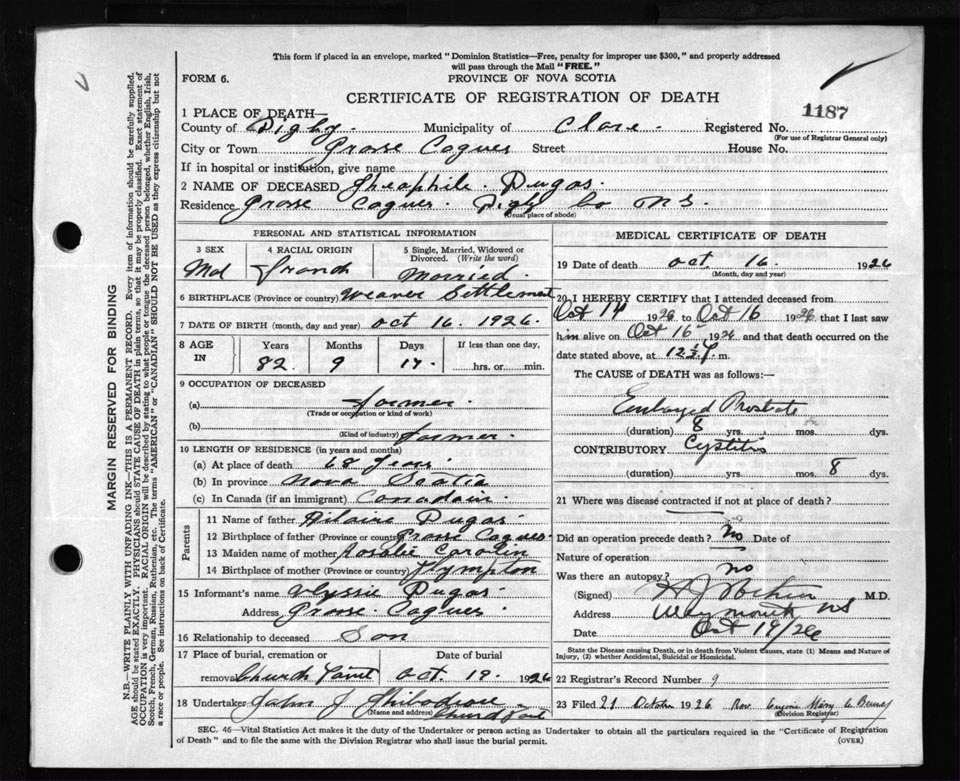 This form if placed in an envelope, marked "Dominion Statistics—Free, penalty for improper use $300," and properly addressed
will pass through the Mail "FREE."
FORM 6.
PROVINCE OF NOVA SCOTIA
CERTIFICATE OF REGISTRATION OF DEATH
1187
1 PLACE OF DEATH—
County of Digby. Municipality of Clare. Registered No.
(For use of Registrar General only)
City or Town Grosse Coques Street House No.
If in hospital or institution, give name
2 NAME OF DECEASED Theophile. Dugas.
Residence Grosse Coques. Digby Co N S.
(Usual place of abode)
PERSONAL AND STATISTICAL INFORMATION
3 SEX 4 RACIAL ORIGIN 5 Single, Married, Widowed or
Divorced. (Write the word)
Mal Franch Married.
6 BIRTHPLACE (Province or country) Weaver Settlement
7 DATE OF BIRTH (month, day and year) oct 16. 1926.
8 AGE IN Years Months Days If less than one day,
82. 9 17. hrs. or min.
9 OCCUPATION OF DECEASED
(a) Farmer.
(Trade or occupation or kind of work)
(b) Farmer.
(Kind of industry)
10 LENGTH OF RESIDENCE (in years and months)
(a) At place of death 68
(b) In province Nova Scotia
(c) In Canada (if an immigrant) Canadain.
Parents
11 Name of father Hilaire Dugas
12 Birthplace of father (Province or country) Grosse Coques.
13 Maiden name of mother Rosalie
14 Birthplace of mother (Province or country) Plympton
15 Informant's name Dugas
Address Grosse Coques.
16 Relationship to deceased Son
17 Place of burial, cremation or Date of burial
removal Church Point oct. 19. 1926
18 Undertaker John J Thibodeau
(Name and address) Church Point
MEDICAL CERTIFICATE OF DEATH
19 Date of death oct. 16. 1926
(Month, day and year)
20 I HEREBY CERTIFY that I attended deceased from
Oct 14 1926 to Oct 16 1926 that I last saw
him alive on Oct 16 1926 and that death occurred on the
date stated above, at 12 m.
The CAUSE of DEATH was as follows:—
Enlarged Prostate
(duration) 8 yrs. mos. dys.
CONTRIBUTORY Cystitis
(duration) yrs. mos. 8 dys.
21 Where was disease contracted if not at place of death?
Did an operation precede death? No Date of
Nature of operation
Was there an autopsy? no
(Signed) M.D.
Address Weymouth NS
Date Oct 19/26
State the Disease causing Death, or in death from Violent Causes, state (1) Means and Nature of
Injury, (2) whether Accidental, Suicidal or Homicidal.
22 Registrar's Record Number 9
23 Filed 21 October 1926 Rev.
(Division Registrar)
SEC. 46—Vital Statistics Act makes it the duty of the Undertaker or person acting as Undertaker to obtain all the particulars required in the "Certificate of Registration
of Death" and to file the same with the Division Registrar who shall issue the burial permit.
(OVER)
MARGIN RESERVED FOR BINDING
N.B.—WRITE PLAINLY WITH UNFADING INK—THIS IS A PERMANENT RECORD. Every item of information should be carefully supplied.
AGE should be stated EXACTLY. PHYSICIANS should STATE CAUSE OF DEATH in plain terms, so that it may be properly classified. Exact statement of
OCCUPATION is very important. RACIAL ORIGIN will be described by stating to what people or tongue the deceased person belonged, whether English, Irish,
Scotch, French, German, Russian, Ruthenian, etc. The terms "AMERICAN" or "CANADIAN" SHOULD NOT BE USED as they express citizenship but not
a race or people. See instructions on back of Certificate.